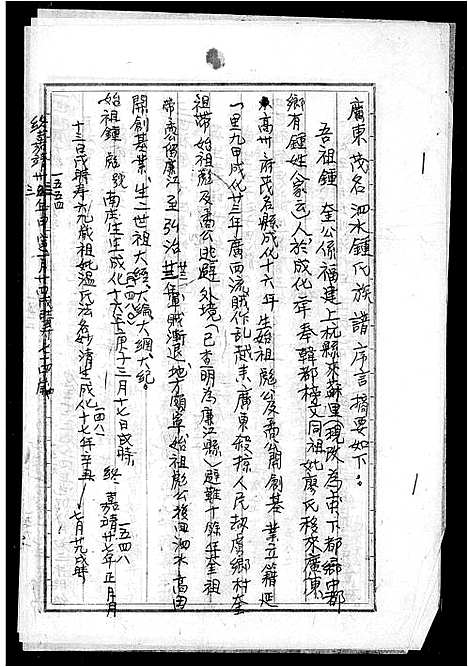 廣東茂名泗水鍾氏族譜序言摘要如下：
吾祖鍾奎公係福建上杭縣來蘇里(現改為南下都鄉中都
鄉有鍾姓八家云)人於成化二年奉韓都榜文同祖妣廖氏移來廣東
高州府茂名縣成化十六年生始祖彪公及喬公開創基業立籍延
一里九甲成化廿三年廣西流賊作乱越來廣東殺掠人民刼虜鄉村奎
祖帶始祖彪及喬公逃避外境(已查明為廉江縣)避難十餘年奎祖
喬公留廉江至弘治 年賊漸退地方頗寧始祖彪公後回泗水高田
開創基業生二世祖大經大綸大綱大紀。
始祖鍾彪號南虎生成化十六年庚子三月十七日戌時 終嘉靖廿七年正月
一五四八
十三日戌時寿六九歲祖妣温氏法名妙清生成化十七年辛丑七月廿九戌時
一四八一
終嘉靖卅三年甲寅 月十四戌時寿七十四歲
一五五四